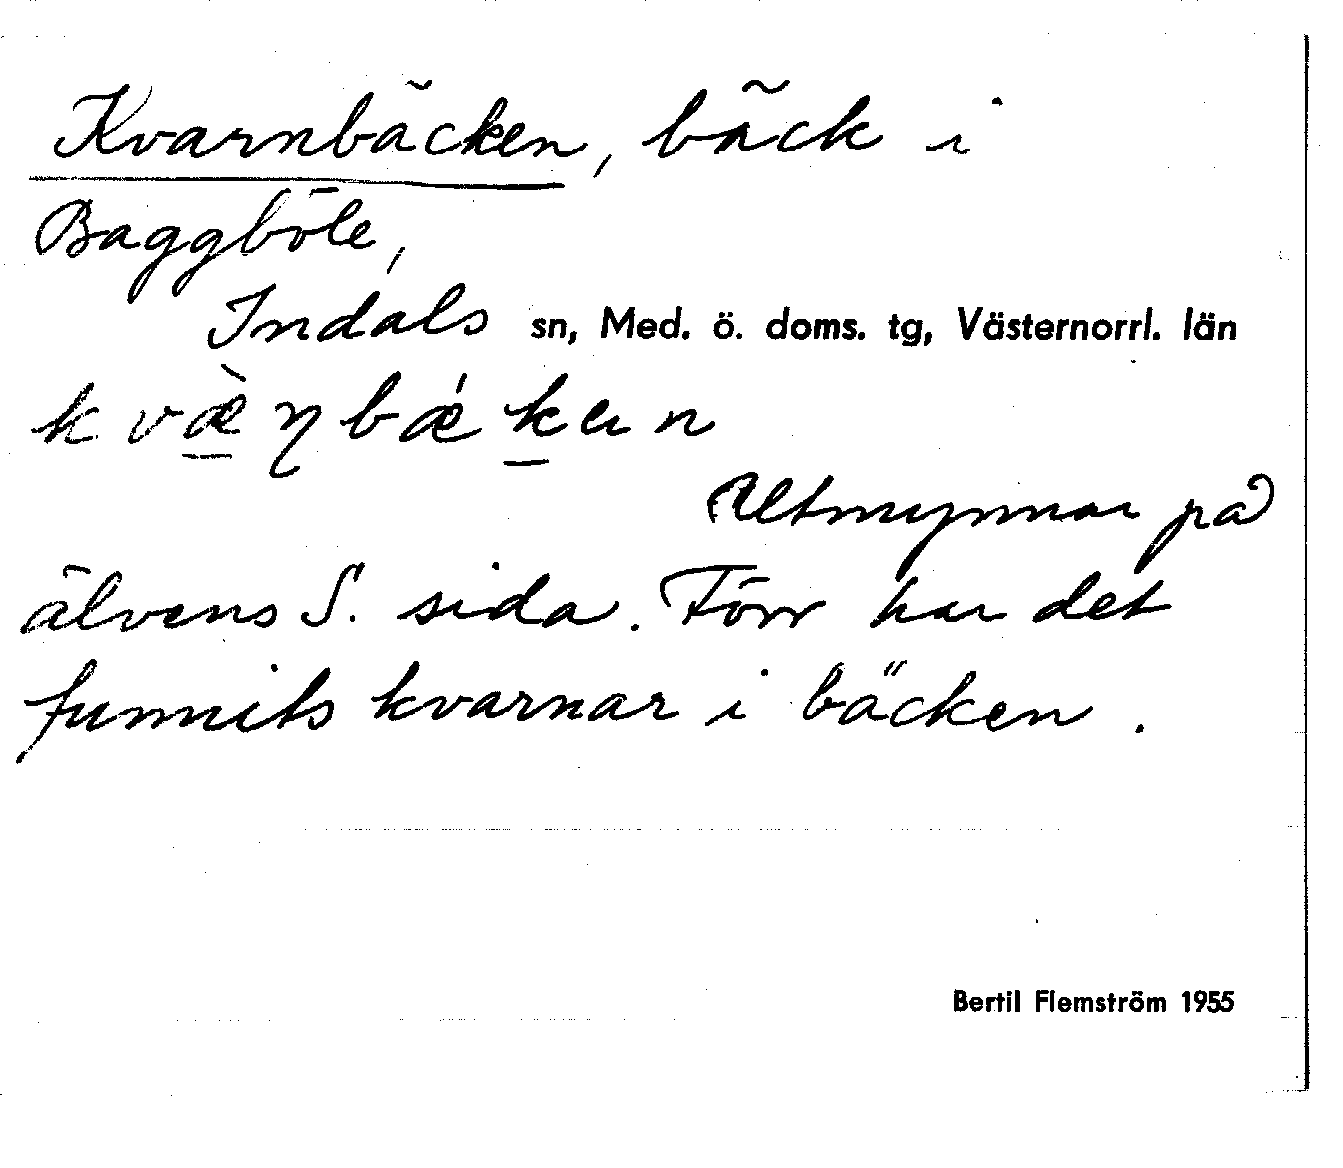 Kvarnbäcken, bäck i
Baggböle,
Indals sn, Med. ö. doms. tg, Västernorrl. län
kvæ̀ɳbǽkɐn
Utmynnar på
älvens S. sida. Förr har det
funnits kvarnar i bäcken.
Bertil Flemström 1955